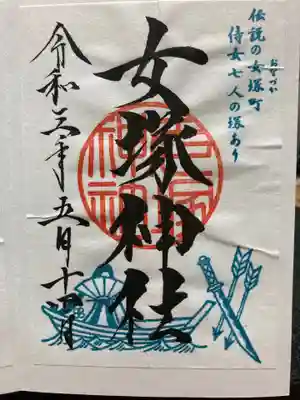 伝説の女塚町
おなづか
侍女七人の塚あり
女塚神社
令和三年五月十四日